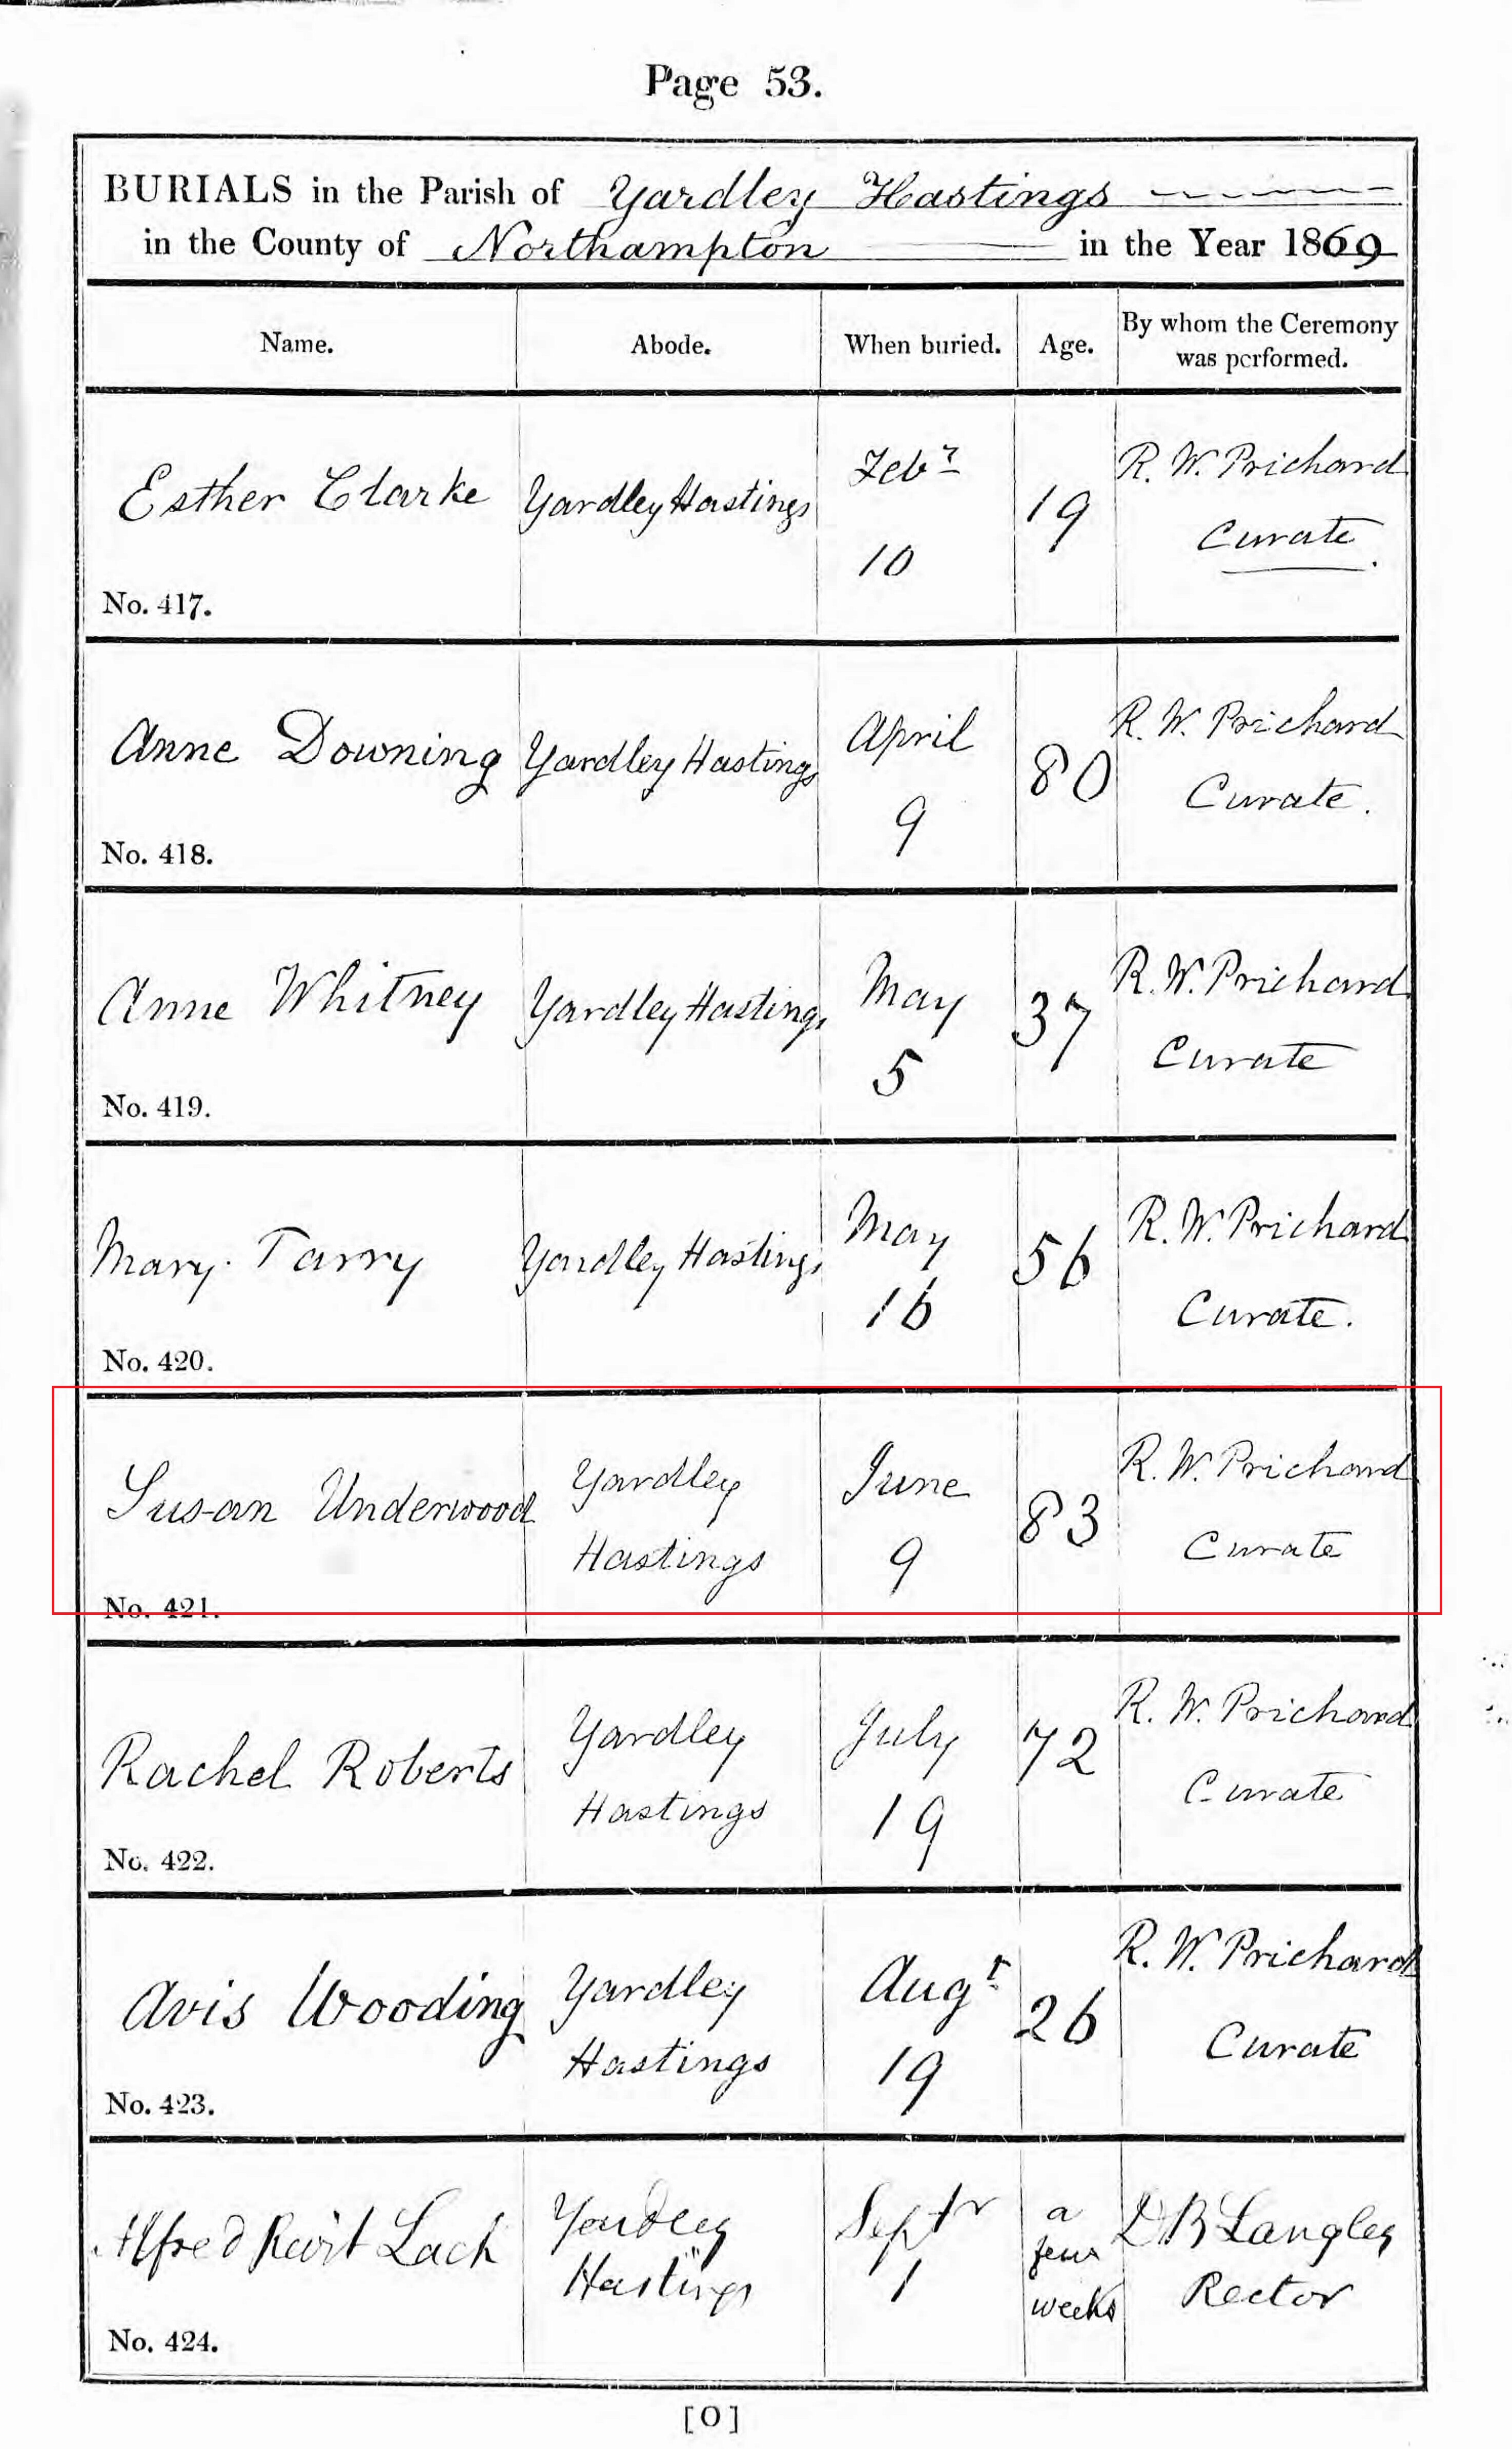 Page 53.
BURIALS in the Parish of Yardley Hastings
in the County of Northampton in the Year 1869
Name. Abode. When buried. Age. By whom the Ceremony was performed.
Esther Clarke Yardley Hastings Febr 10 19 R. W. Prichard Curate
No. 417.
Anne Downing Yardley Hastings April 9 80 R. W. Prichard Curate.
No. 418.
Anne Whitney Yardley Hastings May 5 37 R. W. Prichard Curate
No. 419.
Mary Tarry Yardley Hastings May 16 56 R. W. Prichard Curate.
No. 420.
Susan Underwood Yardley Hastings June 9 83 R. W. Prichard Curate
No. 421.
Rachel Roberts Yardley Hastings July 19 72 R. W. Prichard Curate
No. 422.
Avis Wooding Yardley Hastings Augt 19 26 R. W. Prichard Curate
No. 423.
Alfred Lack Yardley Hastings Septr 1 a few weeks D B Langley Rector
No. 424.
[O]